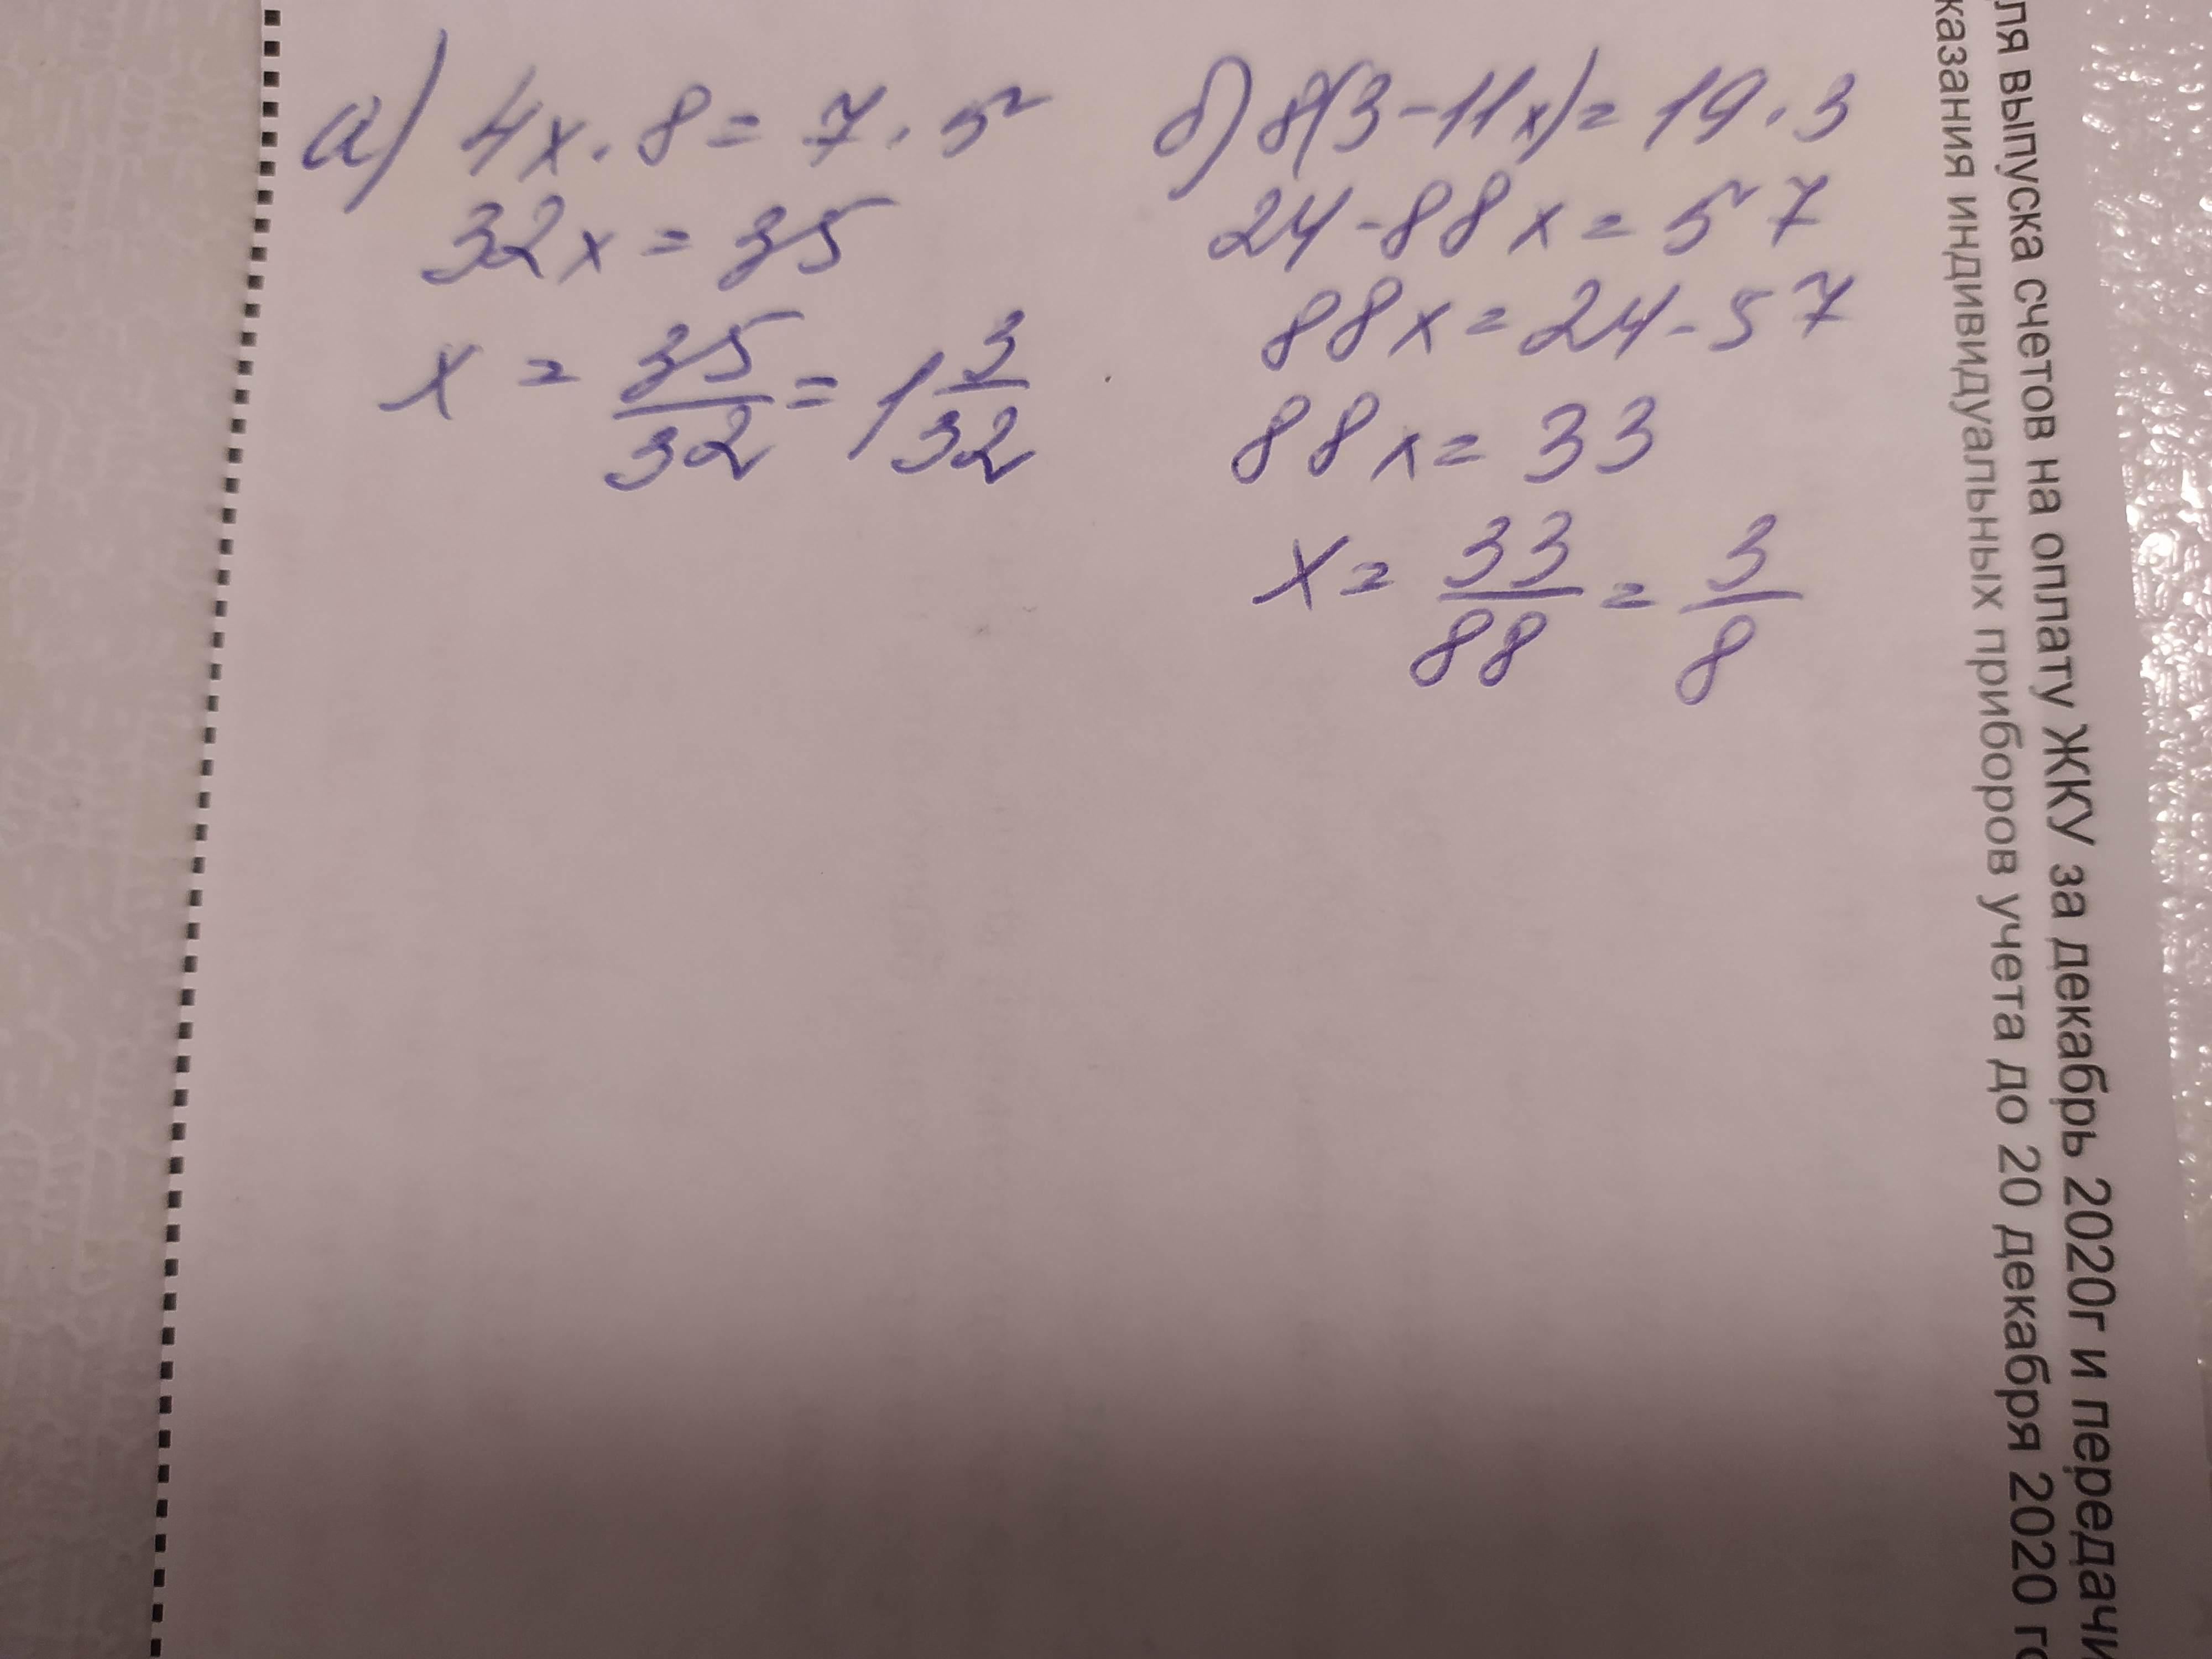 а) 4x · 8 = 7 · 5
32x = 35
x = 35/32 = 1 3/32
б) 8(3 - 11x) = 19 · 3
24 - 88x = 57
88x = 24 - 57
88x = 33
x = 33/88 = 3/8
ля выпуска счетов на оплату ЖКУ за декабрь 2020г и передачи
казания индивидуальных приборов учета до 20 декабря 2020 го